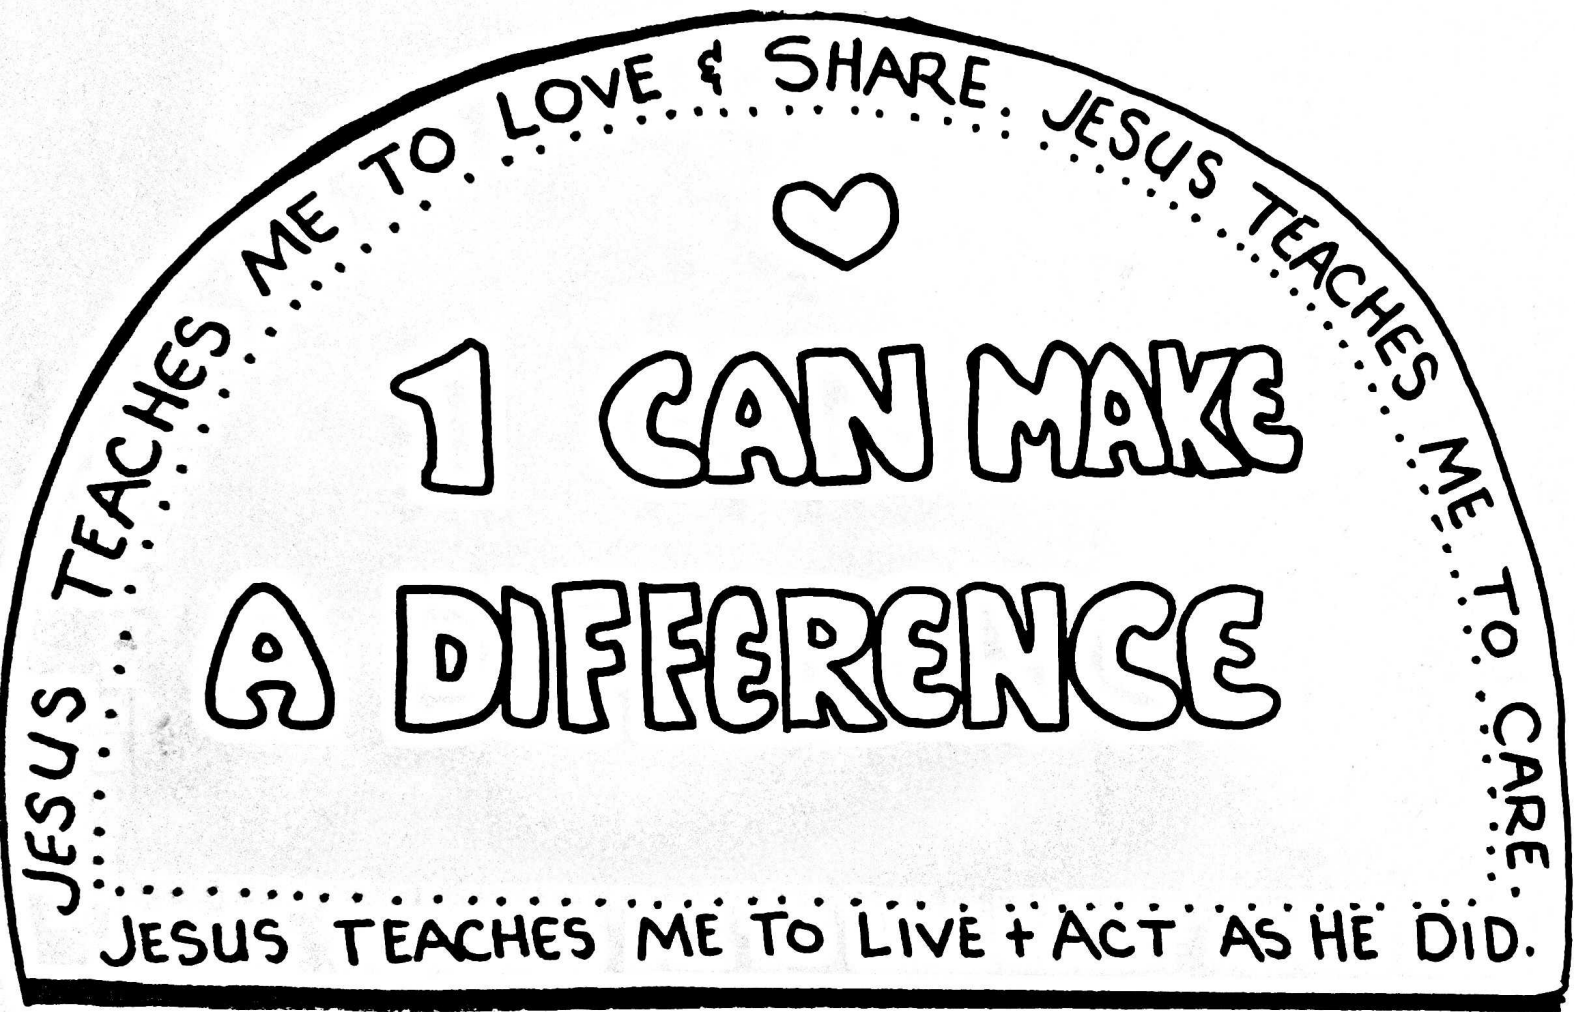 JESUS TEACHES ME TO LOVE & SHARE. JESUS TEACHES ME TO CARE.
1 CAN MAKE
A DIFFERENCE
JESUS TEACHES ME TO LIVE + ACT AS HE DID.